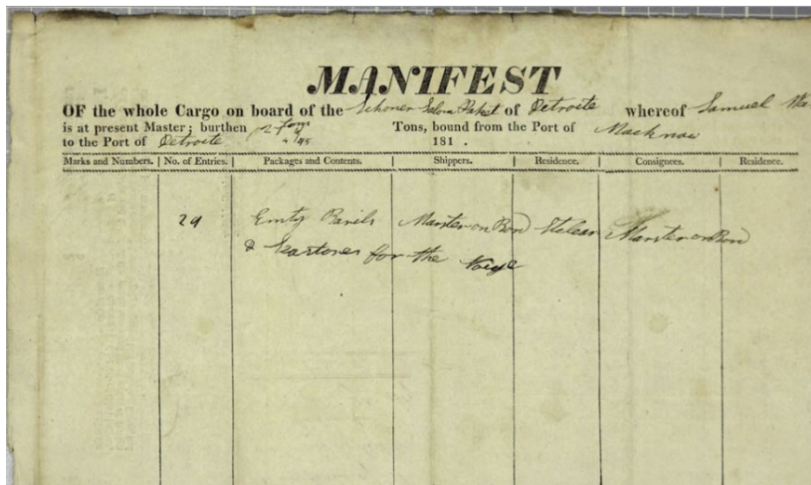 MANIFEST
OF the whole Cargo on board of the Schoner Salem Paket of Detroite whereof Samuel
is at present Master; burthen Tons, bound from the Port of Macknaw
to the Port of Detroite 181 .
Marks and Numbers. No. of Entries. Packages and Contents. Shippers. Residence. Consignees. Residence.
29 Emty Barils Marster on Bord Marster on Bord
& for the